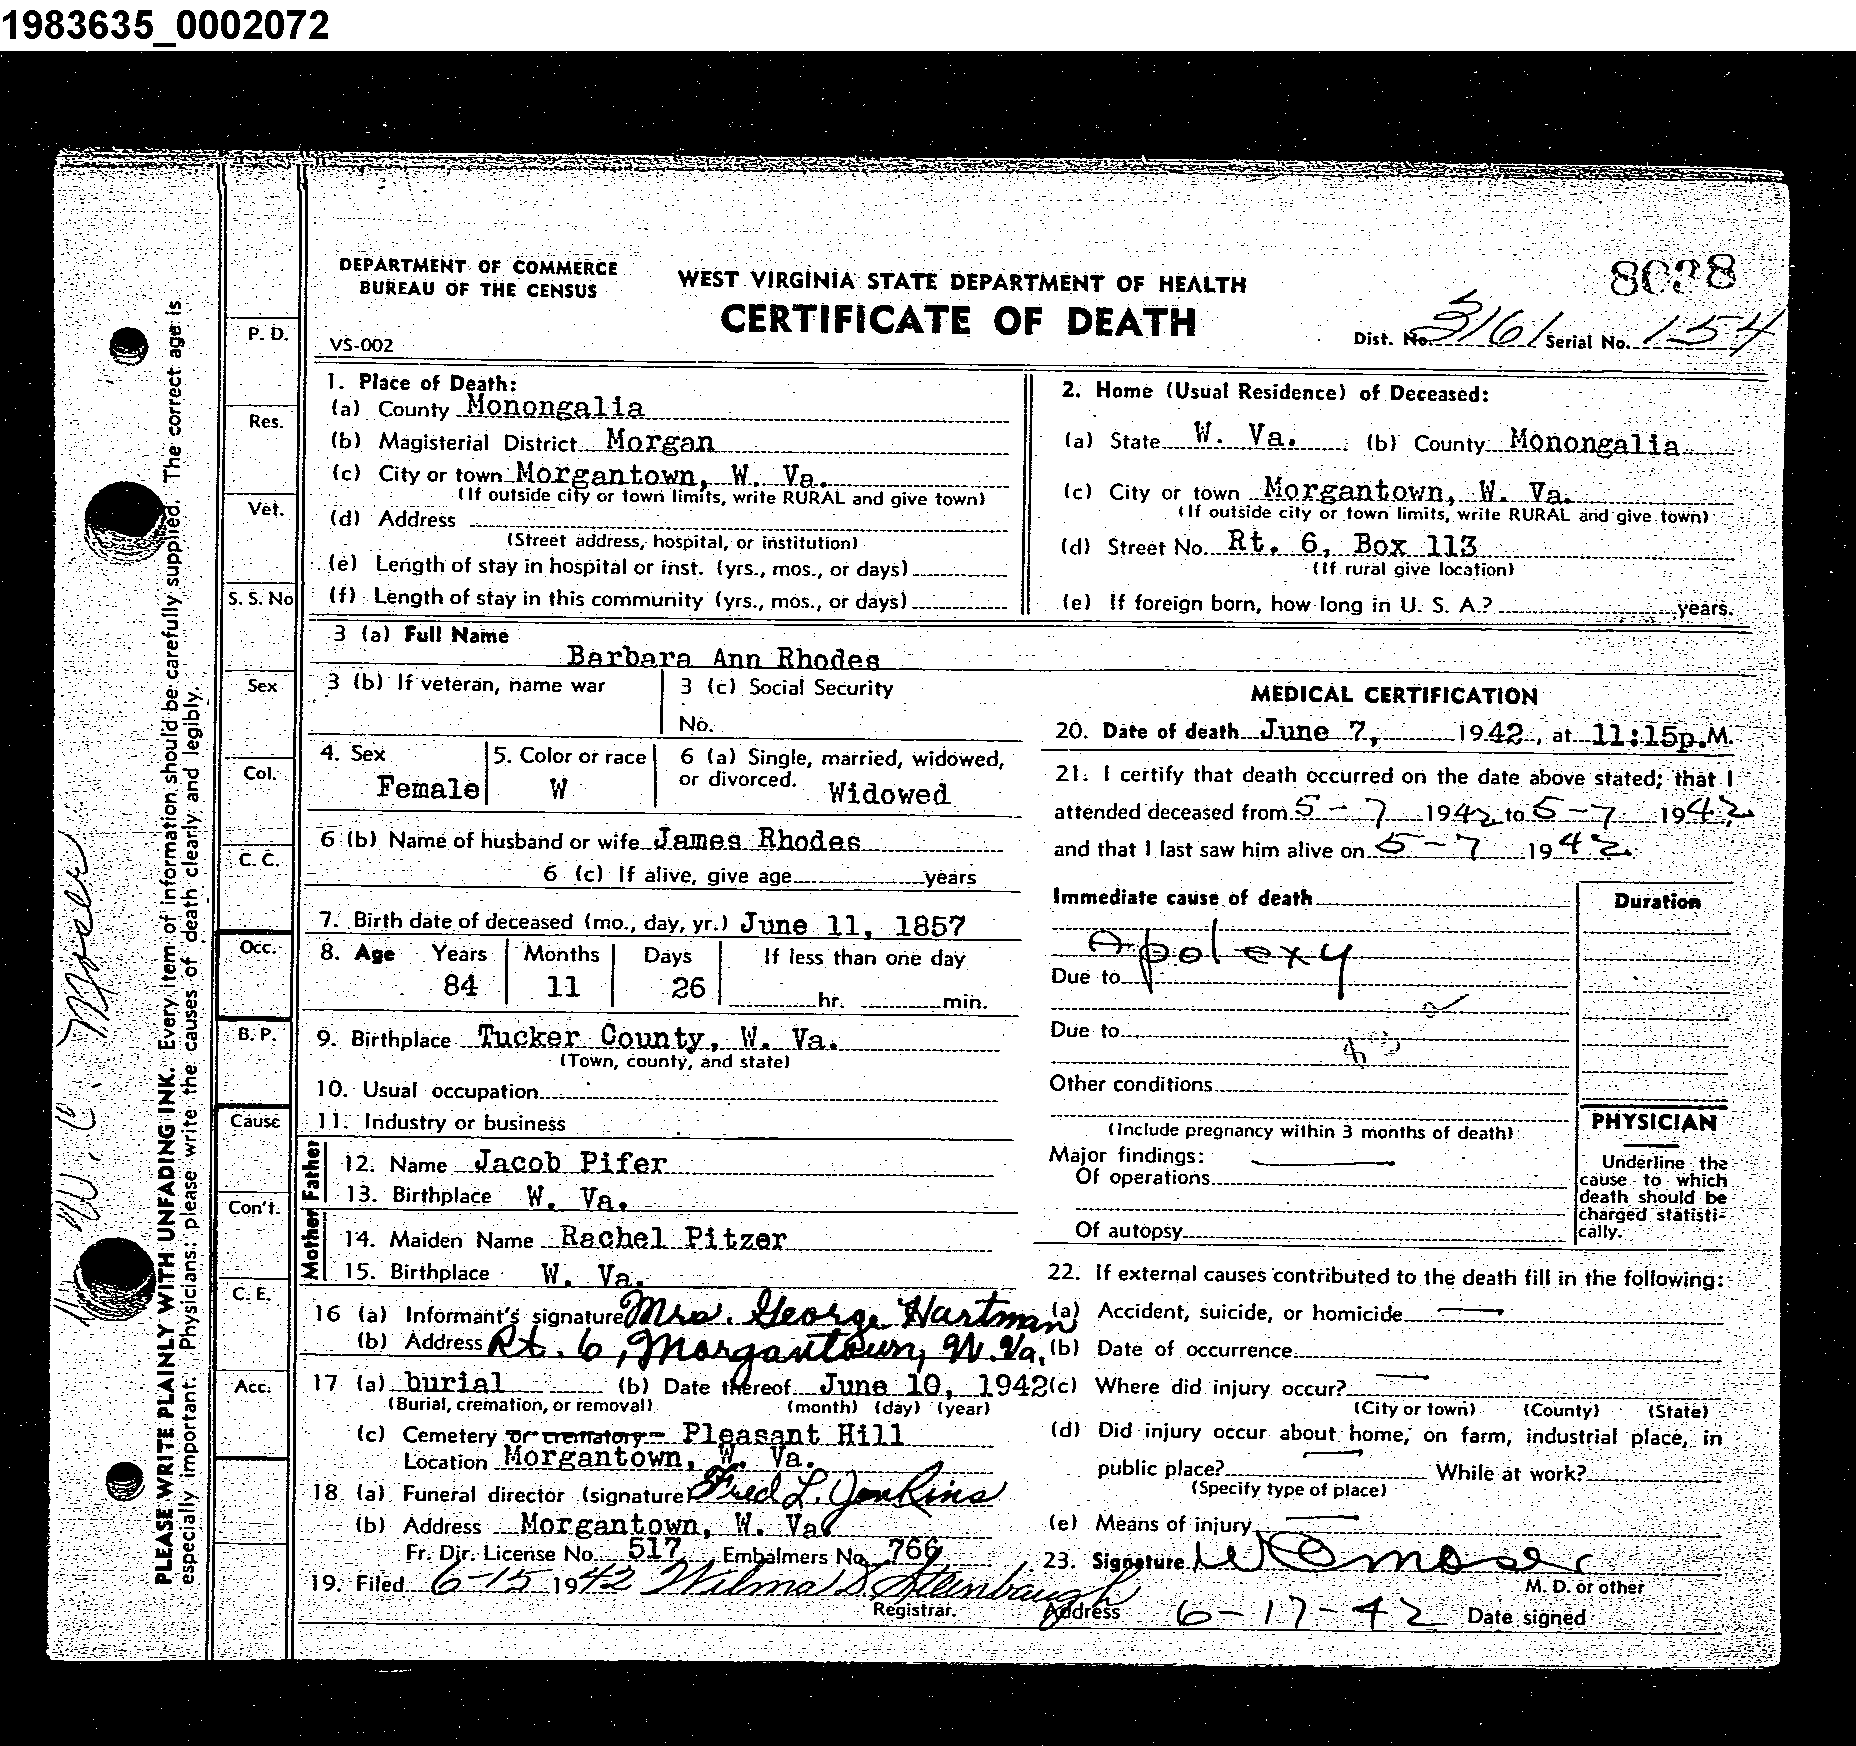 1983635_0002072
DEPARTMENT OF COMMERCE
BUREAU OF THE CENSUS
WEST VIRGINIA STATE DEPARTMENT OF HEALTH
CERTIFICATE OF DEATH
VS-002
Dist. No. 3161 Serial No. 154
1. Place of Death:
(a) County Monongalia
(b) Magisterial District Morgan
(c) City or town Morgantown, W. Va.
(If outside city or town limits, write RURAL and give town)
(d) Address
(Street address, hospital, or institution)
(e) Length of stay in hospital or inst. (yrs., mos., or days)
(f) Length of stay in this community (yrs., mos., or days)
2. Home (Usual Residence) of Deceased:
(a) State W. Va. (b) County Monongalia
(c) City or town Morgantown, W. Va.
(If outside city or town limits, write RURAL and give town)
(d) Street No. Rt. 6, Box 113
(If rural give location)
(e) If foreign born, how long in U. S. A.? years.
3 (a) Full Name
Barbara Ann Rhodes
3 (b) If veteran, name war
3 (c) Social Security
No.
4. Sex
Female
5. Color or race
W
6 (a) Single, married, widowed,
or divorced. Widowed
6 (b) Name of husband or wife James Rhodes
6 (c) If alive, give age years
7. Birth date of deceased (mo., day, yr.) June 11, 1857
8. Age Years Months Days If less than one day
84 11 26 hr. min.
9. Birthplace Tucker County, W. Va.
(Town, county, and state)
10. Usual occupation
11. Industry or business
Father
12. Name Jacob Pifer
13. Birthplace W. Va.
Mother
14. Maiden Name Rachel Pitzer
15. Birthplace W. Va.
16 (a) Informant's signature Mrs. George Hartman
(b) Address Rt. 6, Morgantown, W. Va.
17 (a) burial (b) Date thereof June 10, 1942
(Burial, cremation, or removal) (month) (day) (year)
(c) Cemetery or crematory Pleasant Hill
Location Morgantown, W. Va.
18 (a) Funeral director (signature) Fred L. Jenkins
(b) Address Morgantown, W. Va.
Fr. Dir. License No. 517 Embalmers No. 766
19. Filed 6-15 1942 Wilma
Registrar.
MEDICAL CERTIFICATION
20. Date of death June 7, 1942, at 11:15p.M.
21. I certify that death occurred on the date above stated; that I
attended deceased from 5-7 1942 to 5-7 1942
and that I last saw him alive on 5-7 1942.
Immediate cause of death
Apolexy
Due to
Due to
Other conditions
(Include pregnancy within 3 months of death)
Major findings:
Of operations
Of autopsy
Duration
PHYSICIAN
Underline the
cause to which
death should be
charged statisti-
cally.
22. If external causes contributed to the death fill in the following:
(a) Accident, suicide, or homicide
(b) Date of occurrence
(c) Where did injury occur?
(City or town) (County) (State)
(d) Did injury occur about home, on farm, industrial place, in
public place? While at work?
(Specify type of place)
(e) Means of injury
23. Signature W C Moser
M. D. or other
Address 6-17-42 Date signed
P. D.
Res.
Vet.
S. S. No
Sex
Col.
C. C.
Occ.
B. P.
Cause
Con't.
C. E.
Acc.
PLEASE WRITE PLAINLY WITH UNFADING INK. Every item of information should be carefully supplied. The correct age is
especially important. Physicians: please write the causes of death clearly and legibly.
Moser